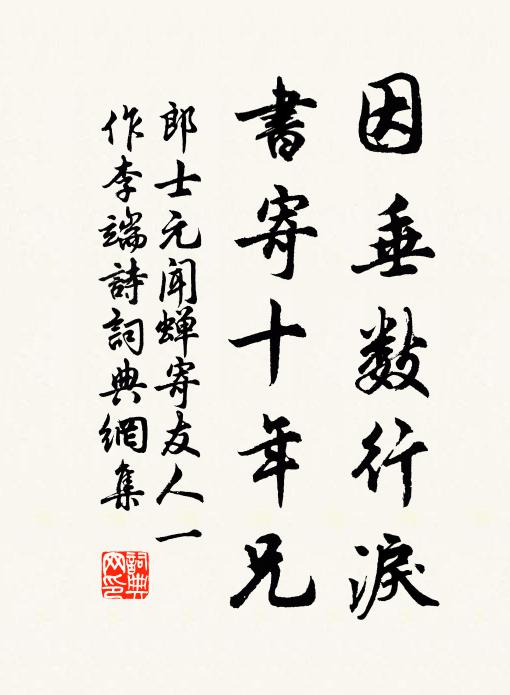 因垂数行淚
書寄十年兄
郎士元闻蝉寄友人一
作李端詩詞典網集
詞典
网印